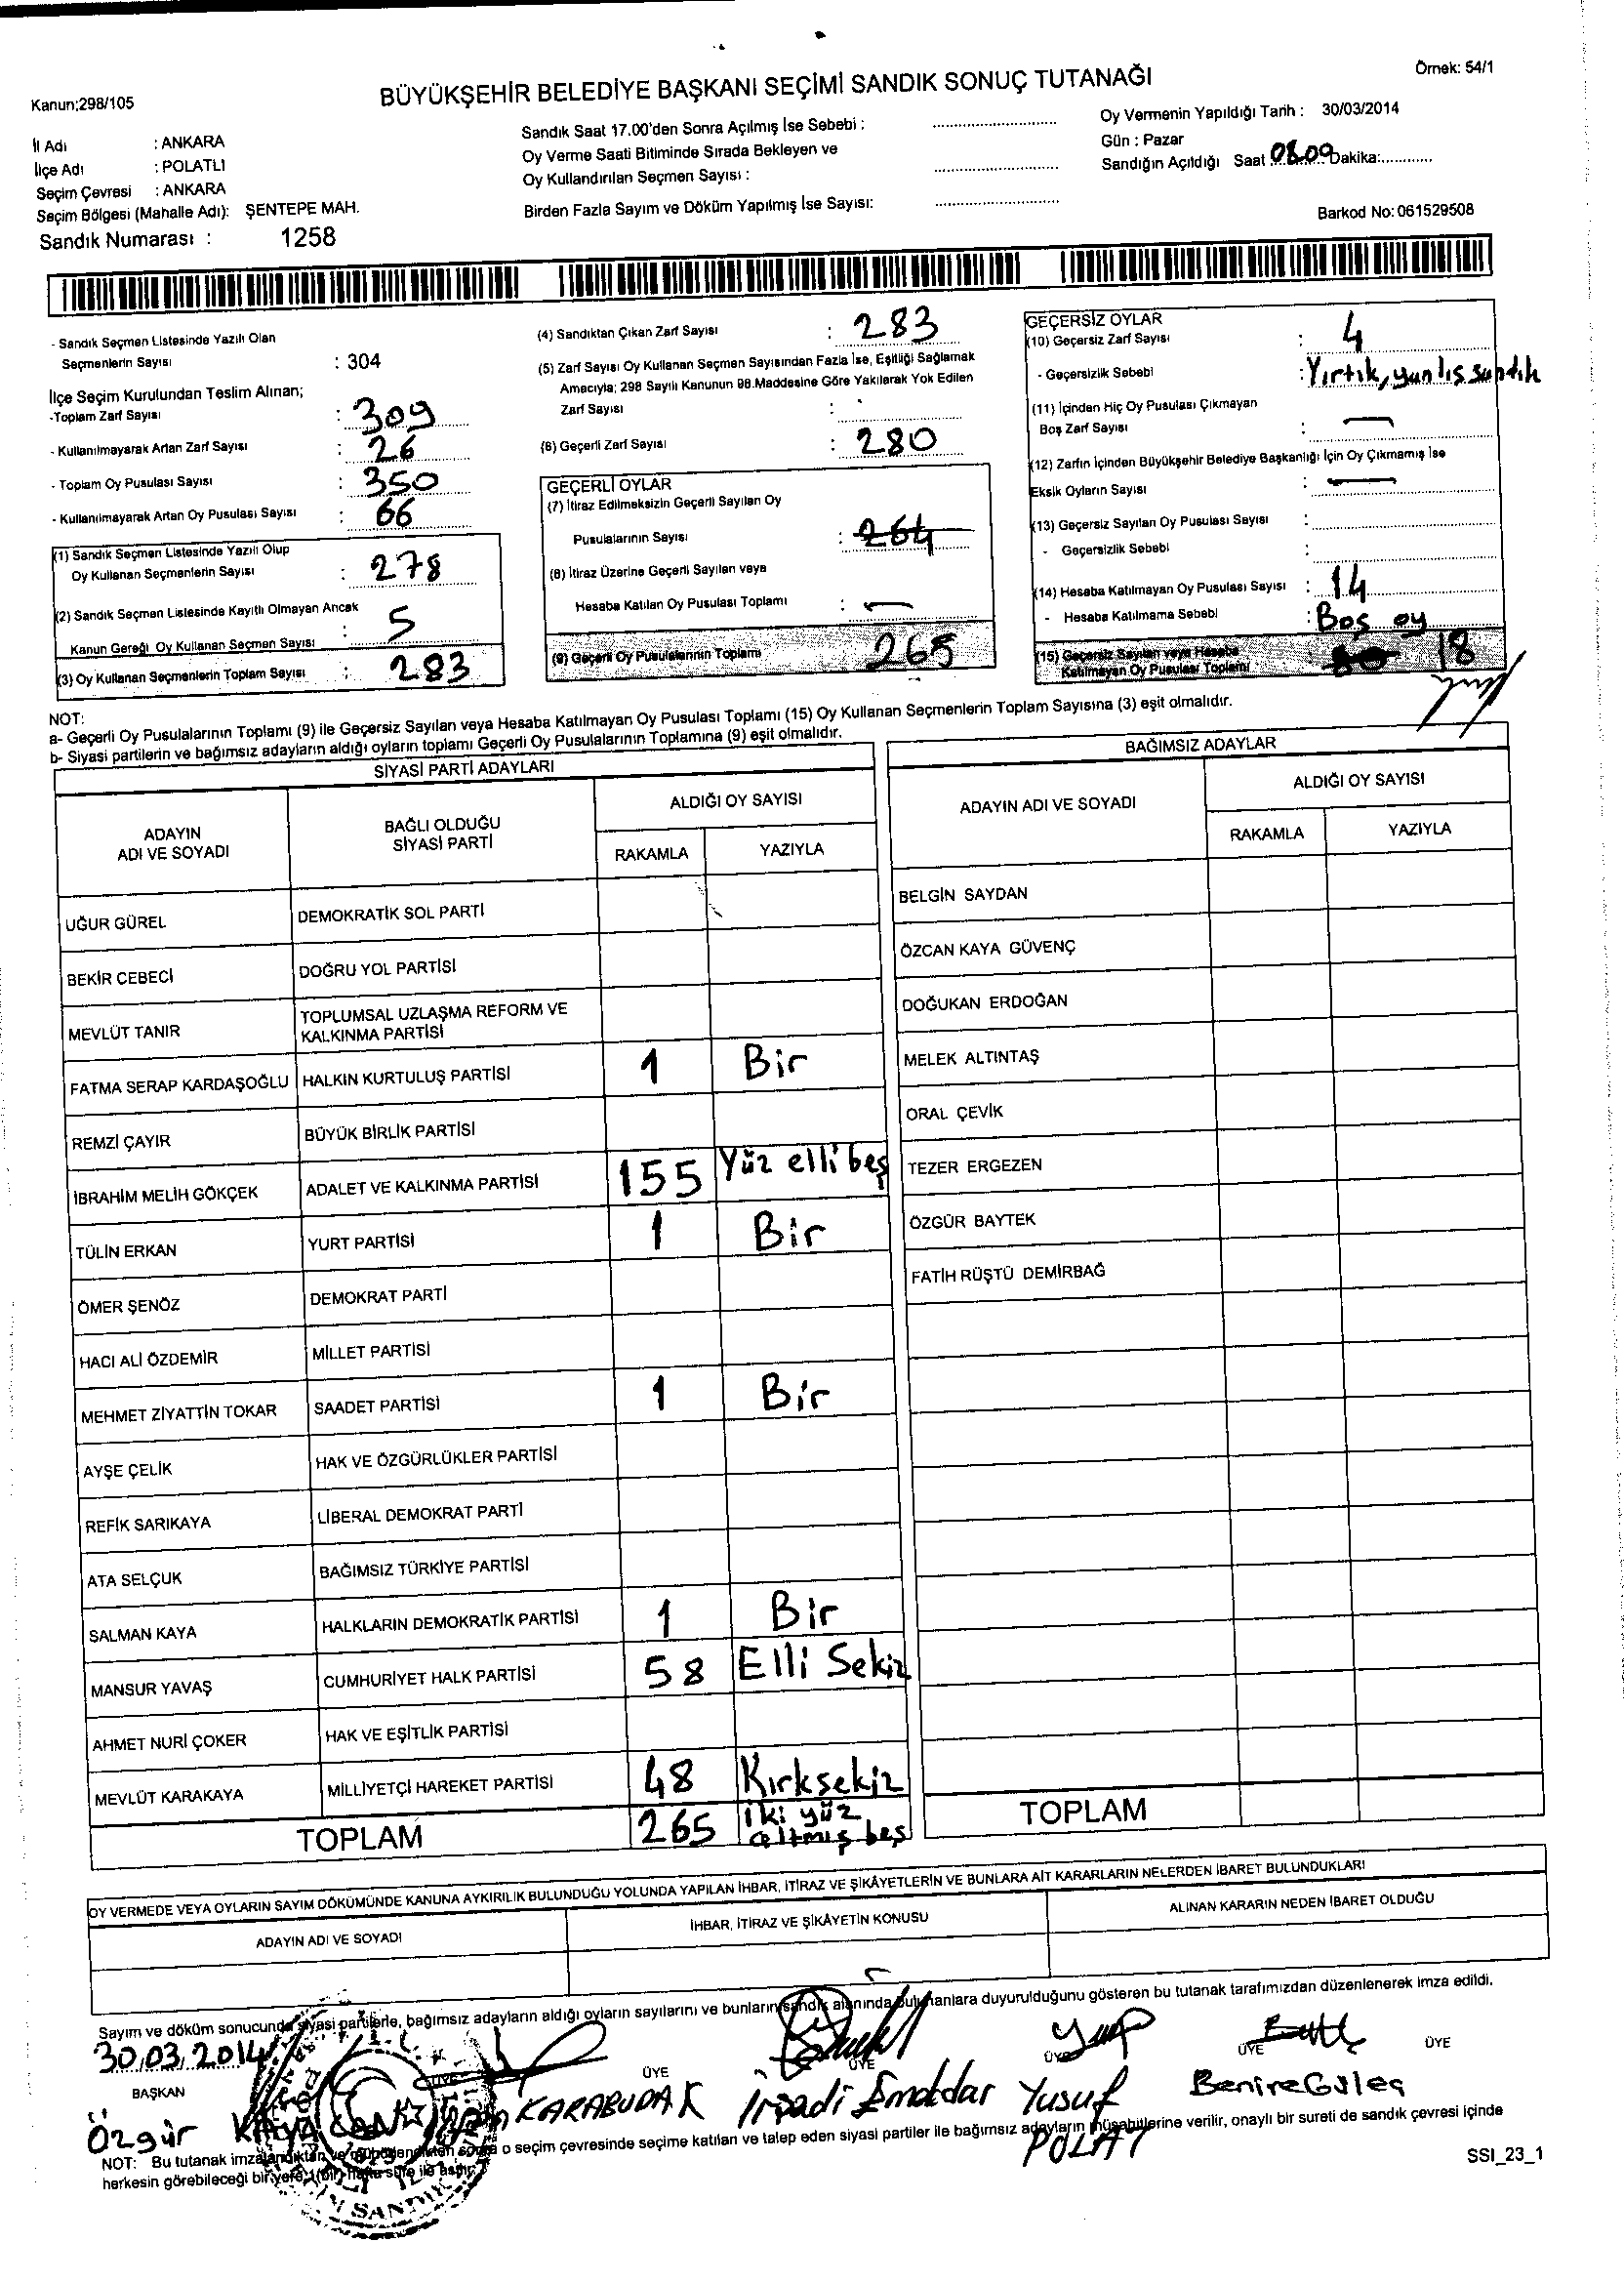 Örnek: 54/1
Kanun;298/105
BÜYÜKŞEHİR BELEDİYE BAŞKANI SEÇİMİ SANDIK SONUÇ TUTANAĞI
İl Adı : ANKARA
İlçe Adı : POLATLI
Seçim Çevresi : ANKARA
Seçim Bölgesi (Mahalle Adı): ŞENTEPE MAH.
Sandık Numarası : 1258
Sandık Saat 17.00'den Sonra Açılmış İse Sebebi :
Oy Verme Saati Bitiminde Sırada Bekleyen ve
Oy Kullandırılan Seçmen Sayısı :
Birden Fazla Sayım ve Döküm Yapılmış İse Sayısı:
Oy Vermenin Yapıldığı Tarih : 30/03/2014
Gün : Pazar
Sandığın Açıldığı Saat 08.09 Dakika:
Barkod No: 061529508
- Sandık Seçmen Listesinde Yazılı Olan
Seçmenlerin Sayısı : 304
İlçe Seçim Kurulundan Teslim Alınan;
-Toplam Zarf Sayısı : 309
- Kullanılmayarak Artan Zarf Sayısı : 26
- Toplam Oy Pusulası Sayısı : 350
- Kullanılmayarak Artan Oy Pusulası Sayısı : 66
(1) Sandık Seçmen Listesinde Yazılı Olup
Oy Kullanan Seçmenlerin Sayısı : 278
(2) Sandık Seçmen Listesinde Kayıtlı Olmayan Ancak
Kanun Gereği Oy Kullanan Seçmen Sayısı : 5
(3) Oy Kullanan Seçmenlerin Toplam Sayısı : 283
(4) Sandıktan Çıkan Zarf Sayısı : 283
(5) Zarf Sayısı Oy Kullanan Seçmen Sayısından Fazla İse, Eşitliği Sağlamak
Amacıyla; 298 Sayılı Kanunun 98.Maddesine Göre Yakılarak Yok Edilen
Zarf Sayısı :
(6) Geçerli Zarf Sayısı : 280
GEÇERLİ OYLAR
(7) İtiraz Edilmeksizin Geçerli Sayılan Oy
Pusulalarının Sayısı : 264
(8) İtiraz Üzerine Geçerli Sayılan veya
Hesaba Katılan Oy Pusulası Toplamı : —
(9) Geçerli Oy Pusulalarının Toplamı 265
GEÇERSİZ OYLAR
(10) Geçersiz Zarf Sayısı : 4
- Geçersizlik Sebebi : Yırtık, yanlış sandık
(11) İçinden Hiç Oy Pusulası Çıkmayan
Boş Zarf Sayısı : —
(12) Zarfın İçinden Büyükşehir Belediye Başkanlığı İçin Oy Çıkmamış İse
Eksik Oyların Sayısı : —
(13) Geçersiz Sayılan Oy Pusulası Sayısı :
- Geçersizlik Sebebi :
(14) Hesaba Katılmayan Oy Pusulası Sayısı : 14
- Hesaba Katılmama Sebebi : Boş oy
(15) Geçersiz Sayılan veya Hesaba
Katılmayan Oy Pusulası Toplamı 18
NOT:
a- Geçerli Oy Pusulalarının Toplamı (9) ile Geçersiz Sayılan veya Hesaba Katılmayan Oy Pusulası Toplamı (15) Oy Kullanan Seçmenlerin Toplam Sayısına (3) eşit olmalıdır.
b- Siyasi partilerin ve bağımsız adayların aldığı oyların toplamı Geçerli Oy Pusulalarının Toplamına (9) eşit olmalıdır.
SİYASİ PARTİ ADAYLARI
ADAYIN ADI VE SOYADI
BAĞLI OLDUĞU SİYASİ PARTİ
ALDIĞI OY SAYISI
RAKAMLA YAZIYLA
UĞUR GÜREL DEMOKRATİK SOL PARTİ
BEKİR CEBECİ DOĞRU YOL PARTİSİ
MEVLÜT TANIR TOPLUMSAL UZLAŞMA REFORM VE KALKINMA PARTİSİ
FATMA SERAP KARDAŞOĞLU HALKIN KURTULUŞ PARTİSİ 1 Bir
REMZİ ÇAYIR BÜYÜK BİRLİK PARTİSİ
İBRAHİM MELİH GÖKÇEK ADALET VE KALKINMA PARTİSİ 155 Yüz elli beş
TÜLİN ERKAN YURT PARTİSİ 1 Bir
ÖMER ŞENÖZ DEMOKRAT PARTİ
HACI ALİ ÖZDEMİR MİLLET PARTİSİ
MEHMET ZİYATTİN TOKAR SAADET PARTİSİ 1 Bir
AYŞE ÇELİK HAK VE ÖZGÜRLÜKLER PARTİSİ
REFİK SARIKAYA LİBERAL DEMOKRAT PARTİ
ATA SELÇUK BAĞIMSIZ TÜRKİYE PARTİSİ
SALMAN KAYA HALKLARIN DEMOKRATİK PARTİSİ 1 Bir
MANSUR YAVAŞ CUMHURİYET HALK PARTİSİ 58 Elli Sekiz
AHMET NURİ ÇOKER HAK VE EŞİTLİK PARTİSİ
MEVLÜT KARAKAYA MİLLİYETÇİ HAREKET PARTİSİ 48 Kırksekiz
TOPLAM 265 İki yüz altmış beş
BAĞIMSIZ ADAYLAR
ADAYIN ADI VE SOYADI
ALDIĞI OY SAYISI
RAKAMLA YAZIYLA
BELGİN SAYDAN
ÖZCAN KAYA GÜVENÇ
DOĞUKAN ERDOĞAN
MELEK ALTINTAŞ
ORAL ÇEVİK
TEZER ERGEZEN
ÖZGÜR BAYTEK
FATİH RÜŞTÜ DEMİRBAĞ
TOPLAM
OY VERMEDE VEYA OYLARIN SAYIM DÖKÜMÜNDE KANUNA AYKIRILIK BULUNDUĞU YOLUNDA YAPILAN İHBAR, İTİRAZ VE ŞİKÂYETLERİN VE BUNLARA AİT KARARLARIN NELERDEN İBARET BULUNDUKLARI
ADAYIN ADI VE SOYADI
İHBAR, İTİRAZ VE ŞİKÂYETİN KONUSU
ALINAN KARARIN NEDEN İBARET OLDUĞU
Sayım ve döküm sonucunda siyasi partilerle, bağımsız adayların aldığı oyların sayılarını ve bunların sandık alanında bulunanlara duyurulduğunu gösteren bu tutanak tarafımızdan düzenlenerek imza edildi.
30.03.2014
BAŞKAN ÜYE ÜYE ÜYE ÜYE ÜYE ÜYE
Özgür KAYA KARABUDAK Yusuf POLAT
NOT: Bu tutanak imzalandıktan ve mühürlendikten sonra o seçim çevresinde seçime katılan ve talep eden siyasi partiler ile bağımsız adayların müşahitlerine verilir, onaylı bir sureti de sandık çevresi içinde
herkesin görebileceği bir yere 1(bir) hafta süre ile asılır.
SSI_23_1